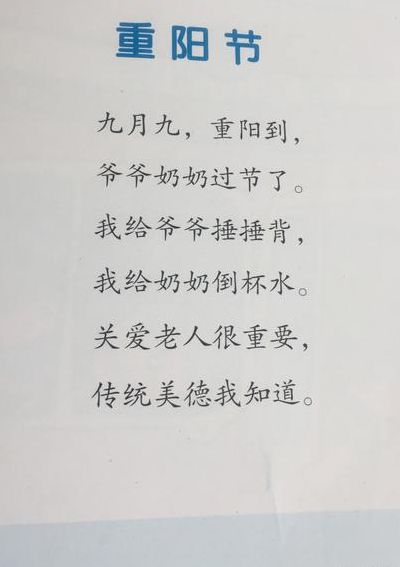 重阳节
九月九，重阳到，
爷爷奶奶过节了。
我给爷爷捶捶背，
我给奶奶倒杯水。
关爱老人很重要，
传统美德我知道。